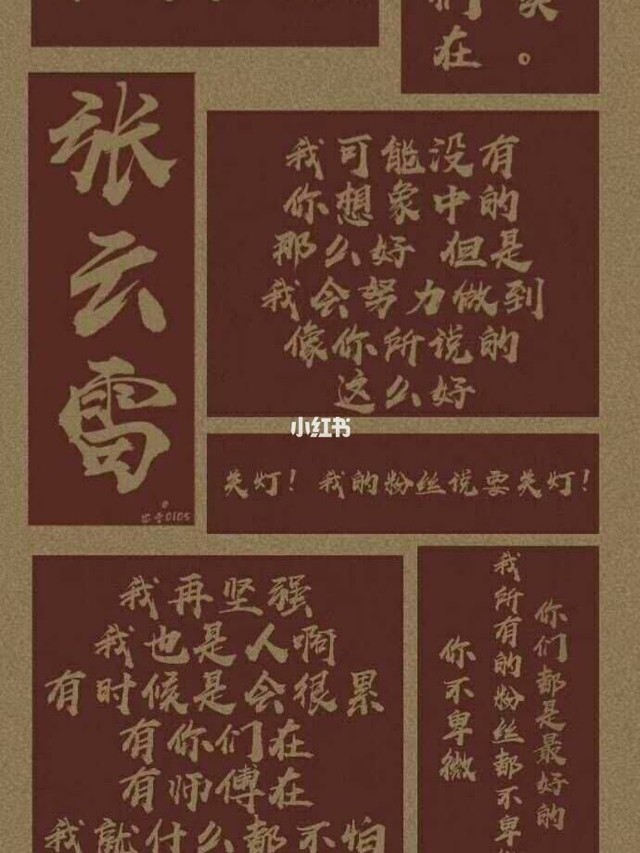 们
在。
张云雷
我可能没有
你想象中的
那么好 但是
我会努力做到
像你所说的
这么好
小红书
关灯！我的粉丝说要关灯！
我再坚强
我也是人啊
有时候是会很累
有你们在
有师傅在
我就什么都不怕
你们都是最好的
我所有的粉丝都不卑微
你不卑微